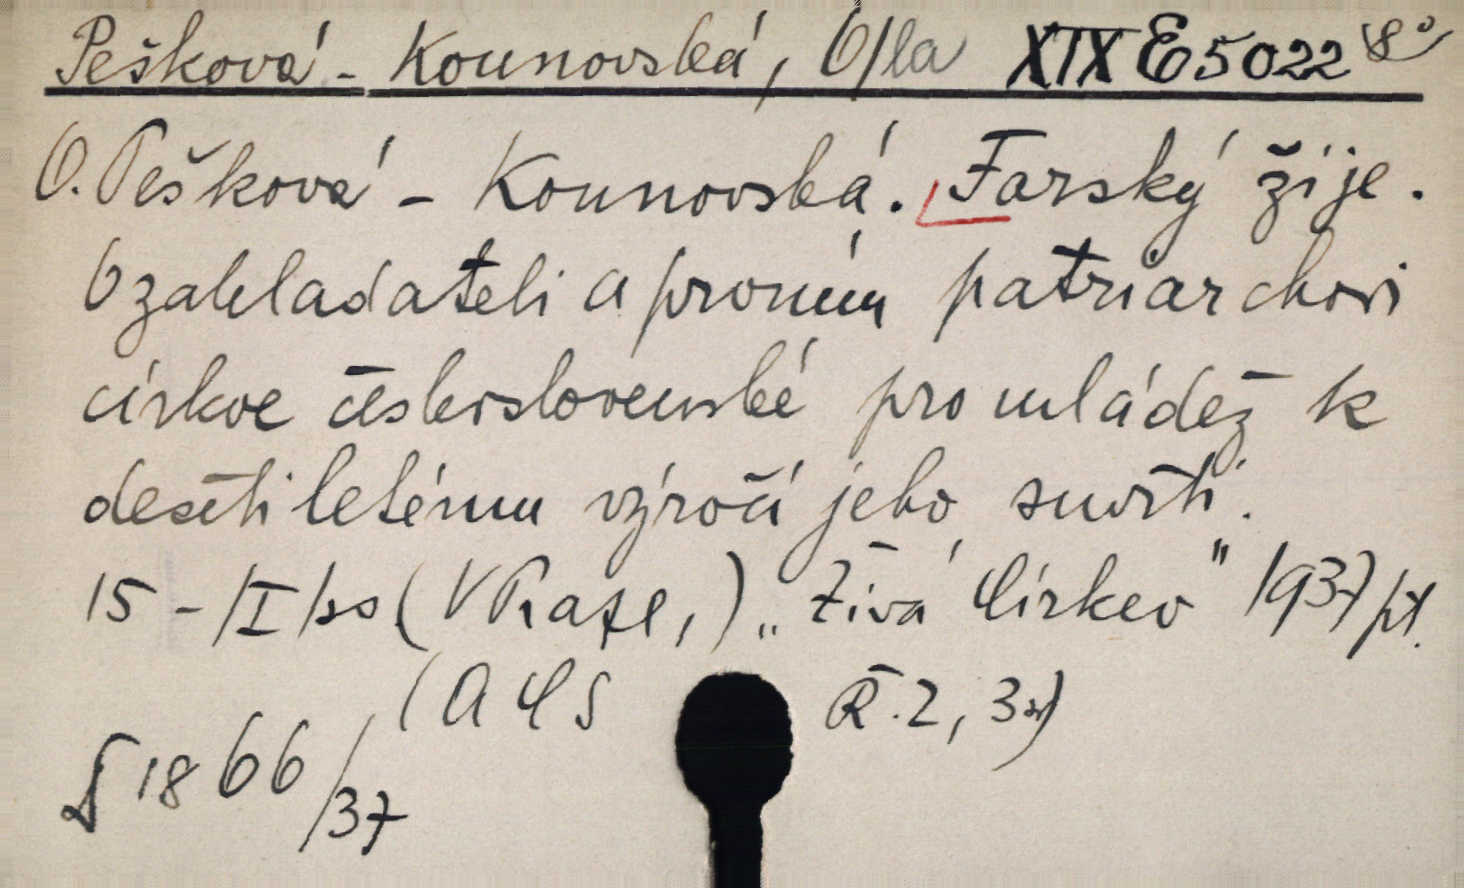 Pešková-Kounovská, O/la XIX E 5022 8°
O. Pešková-Kounovská. Farský žije.
O zakladateli a prvním patriarchovi
církve československé pro mládež k
desítiletému výročí jeho smrti.
15-/I/ (V Praze,) „Živá Církev" 1937 pt.
(A Č S Ř. 2, 3x)
§ 1866/37